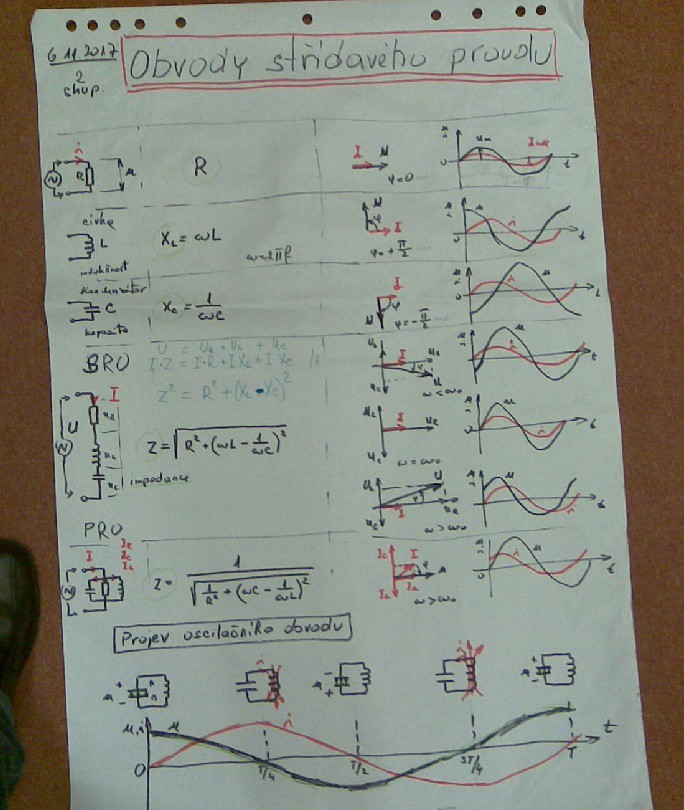 6.11.2017
2
skup.
Obvody střídavého proudu
i
R
u
R
I
u
φ=0
um
t
cívka
L
indukčnost
X_L = ωL
ω=2πf
u
φ
I
φ=+π/2
i
t
kondenzátor
C
kapacita
X_C = 1/ωC
I
φ
u
φ=-π/2
u
i
t
BRO
U = U_R + U_L + U_C
I·Z = I·R + I X_L + I X_C
Z² = R² + (X_L - X_C)²
I
U
u_R
u_L
u_C
Z = √(R² + (ωL - 1/ωC)²)
impedance
ω<ω₀
ω=ω₀
ω>ω₀
PRO
I
I_R
I_C
I_L
Z = 1/√(1/R² + (ωC - 1/ωL)²)
I_C
I
I_R
I_L
u
ω>ω₀
t
Projev oscilačního obvodu
u + -
i
u - +
i
u + -
u,i
u
i
t
0
T/4
T/2
3T/4
T